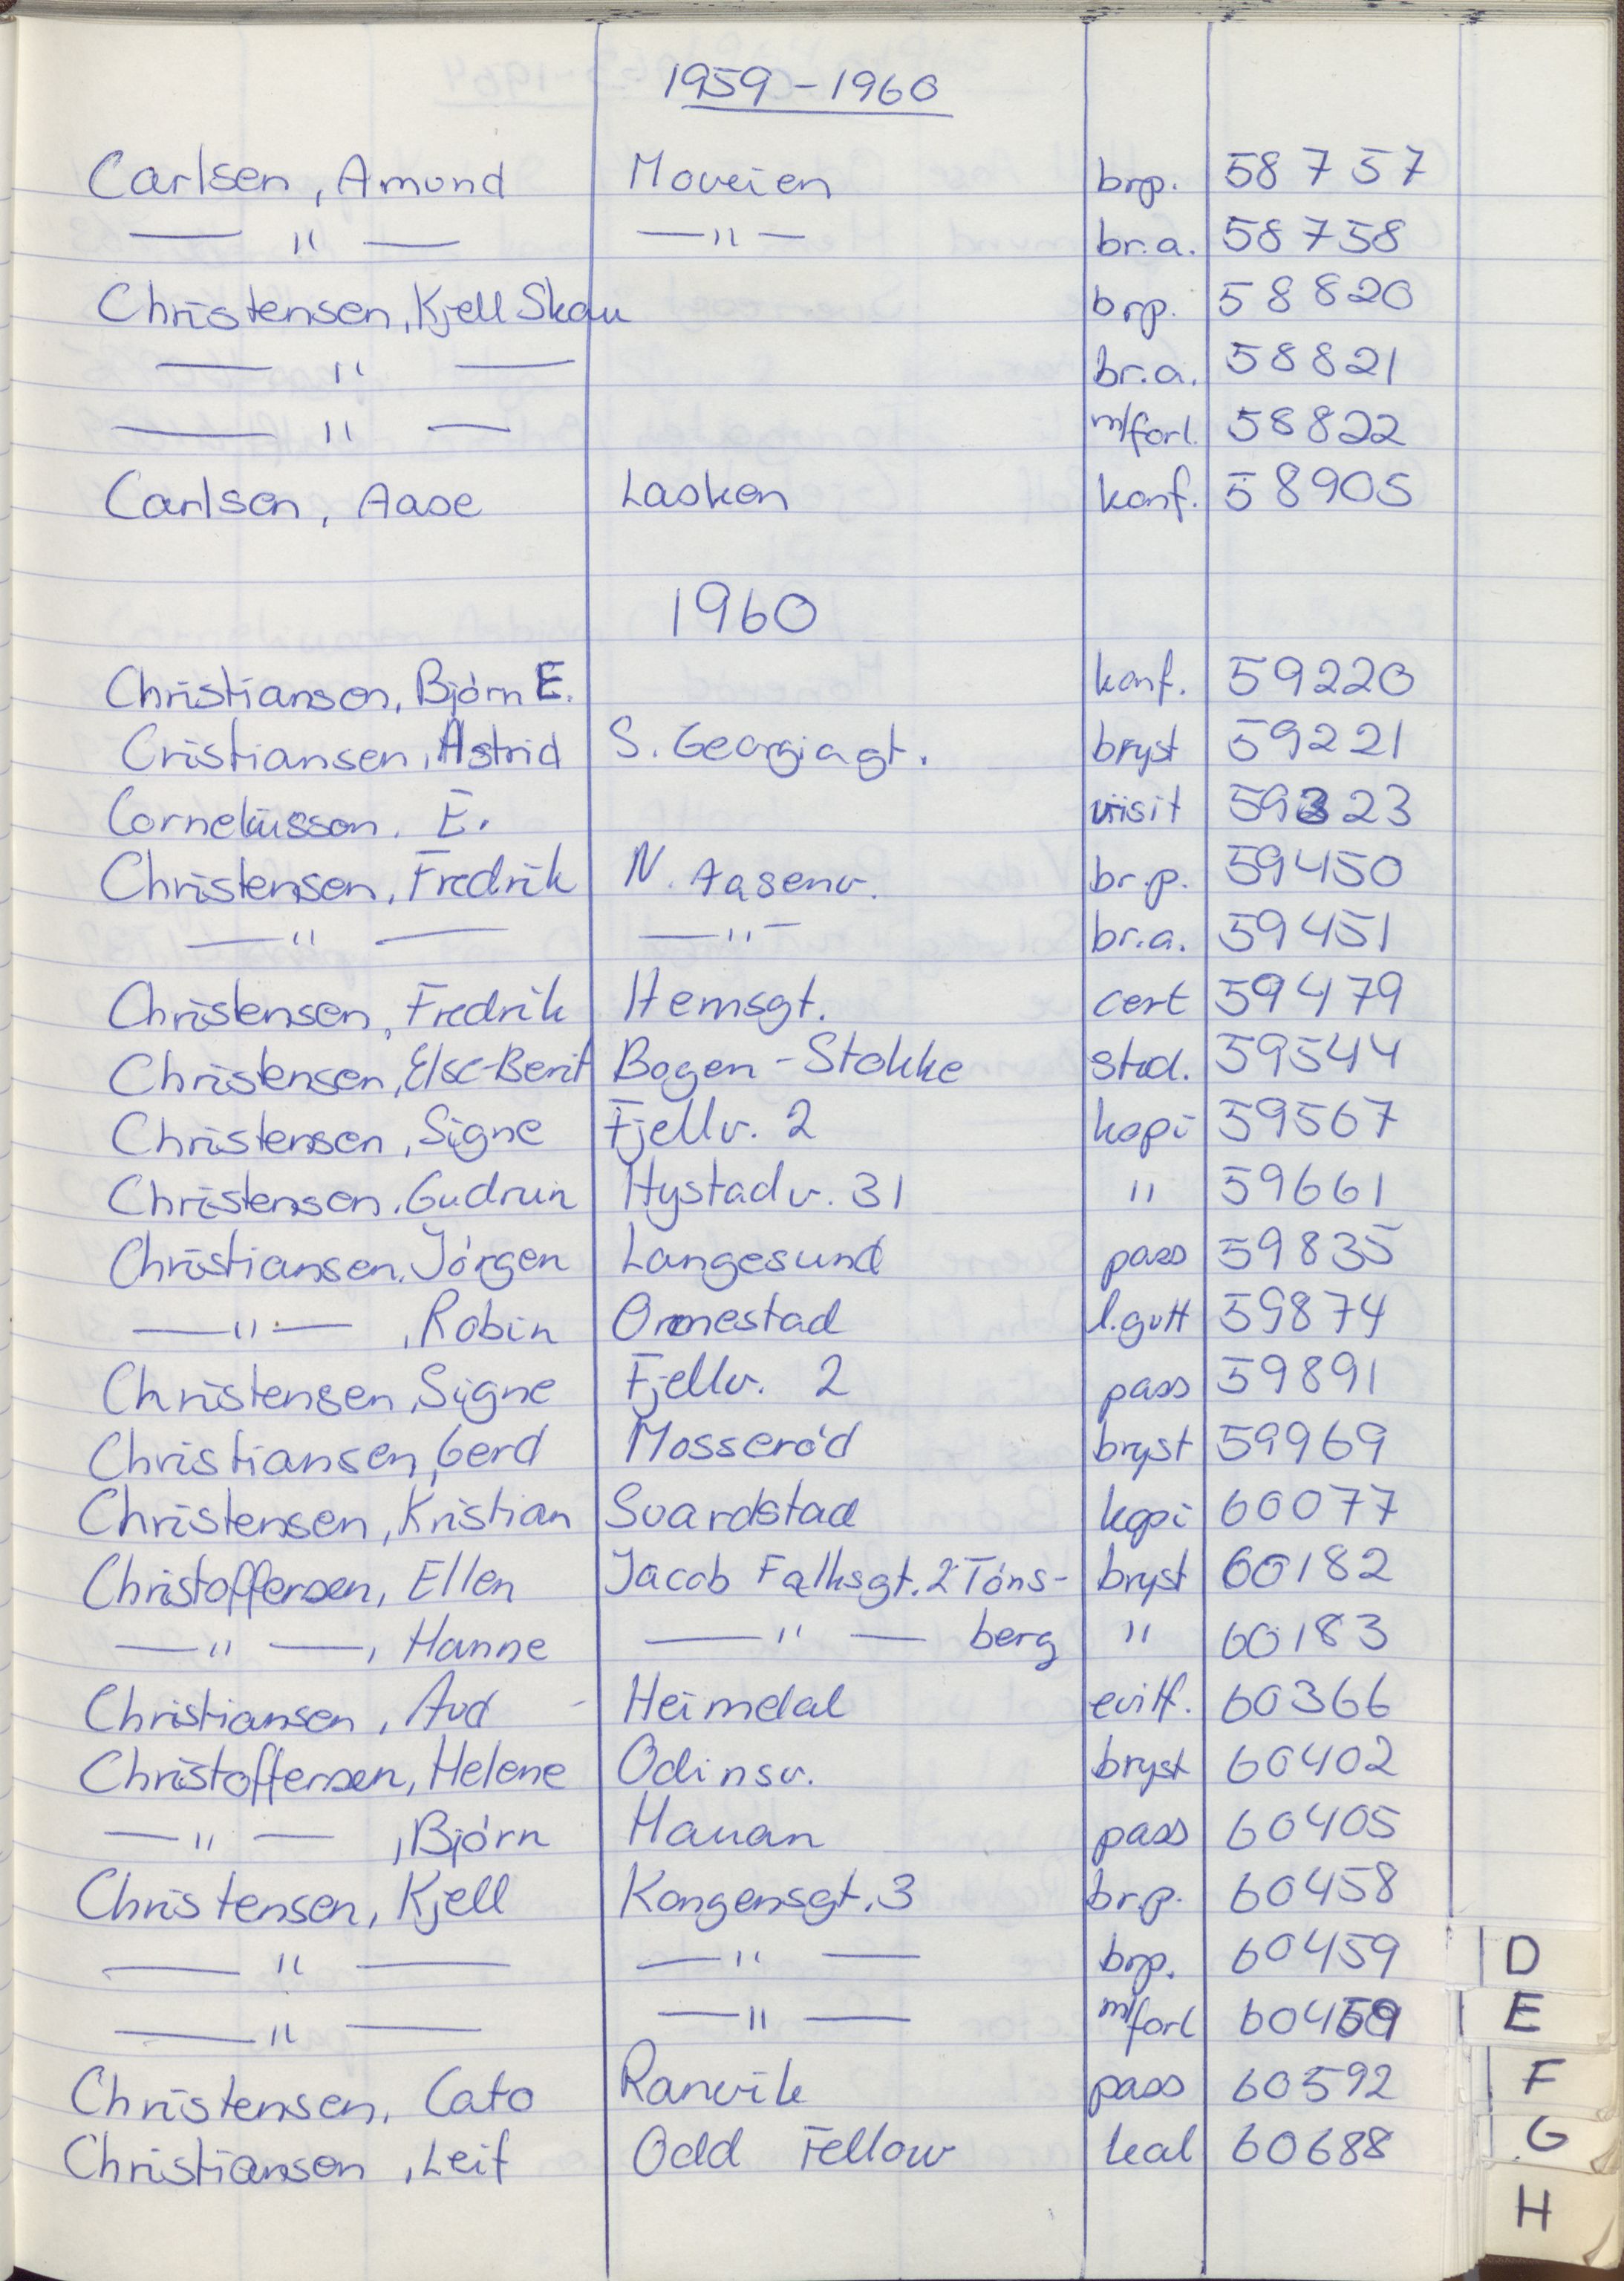 1959 - 1960
Carlsen, Amund Moveien brp. 58757
— " — — " — br.a. 58758
Christensen, Kjell Skau brp. 58820
— " — br.a. 58821
— " — m/forl. 58822
Carlsen, Aase Lasken konf. 58905
1960
Christiansen, Bjørn E. konf. 59220
Cristiansen, Astrid S. Georgiagt. bryst 59221
Corneliussen. E. visit 59323
Christensen, Fredrik N. Aasenv. br.p. 59450
— " — — " — br.a. 59451
Christensen, Fredrik Hemsgt. cert 59479
Christensen, Else-Berit Bogen - Stokke stud. 59544
Christensen, Signe Fjellv. 2 kopi 59567
Christensen, Gudrun Hystadv. 31 " 59661
Christiansen, Jørgen Langesund pass 59835
— " — , Robin Ormestad l.gutt 59874
Christensen, Signe Fjellv. 2 pass 59891
Christiansen, Gerd Mosserød bryst 59969
Christensen, Kristian Svardstad kopi 60077
Christoffersen, Ellen Jacob Falksgt. 2 Tøns- bryst 60182
— " — , Hanne — " — berg " 60183
Christiansen, Aud Heimdal 60366
Christoffersen, Helene Odinsv. bryst 60402
— " — , Bjørn Hauan pass 60405
Christensen, Kjell Kongensgt. 3 br.p. 60458
— " — — " — brp. 60459
— " — — " — m/forl
Christensen, Cato Ranvik pass 60592
Christiansen, Leif Odd Fellow kal 60688
D
E
F
G
H